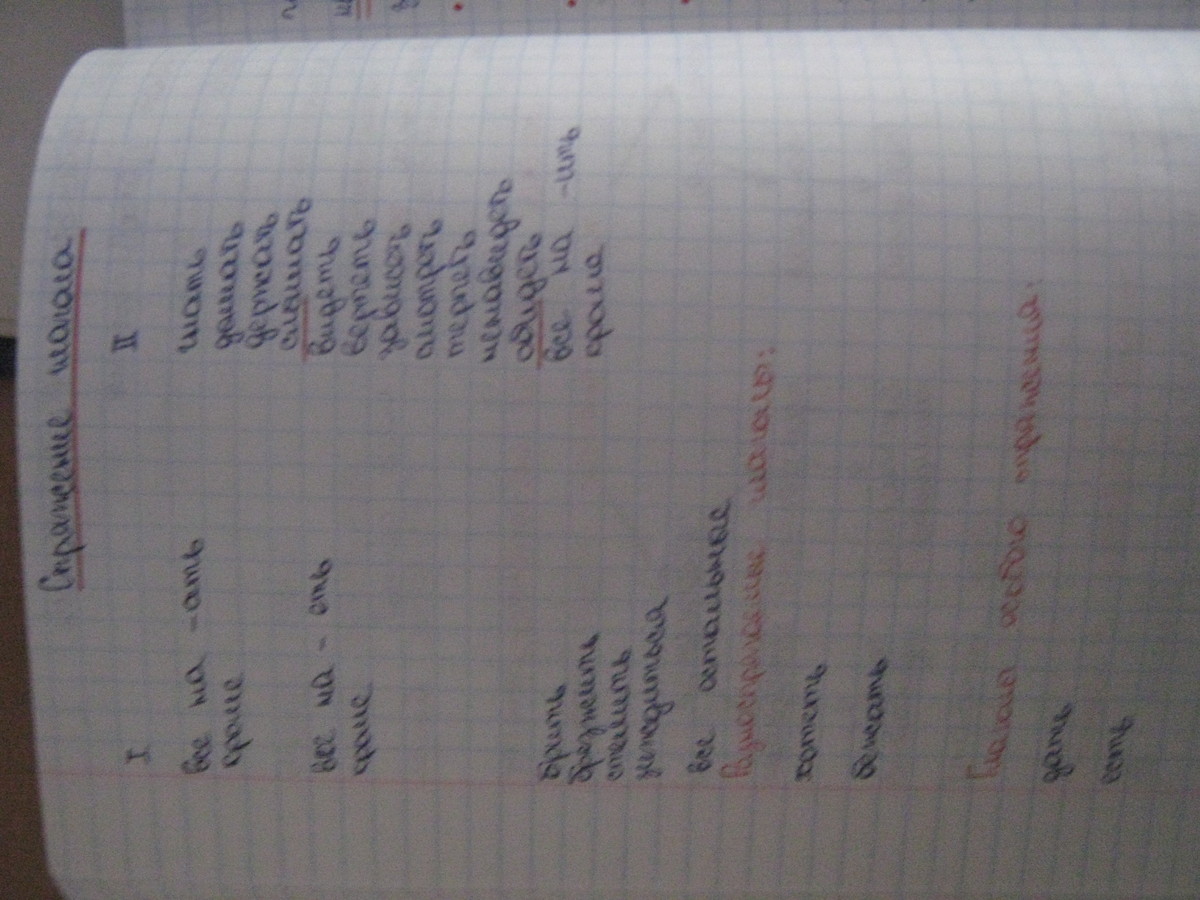 Спряжение глагола
I II
все на -ать гнать
кроме дышать
держать
слышать
все на -еть видеть
кроме вертеть
зависеть
смотреть
терпеть
ненавидеть
обидеть
брить все на -ить
брезжить кроме
стелить
зиждиться
все остальные
Разноспрягаемые глаголы:
хотеть
бежать
Глаголы особого спряжения:
дать
есть